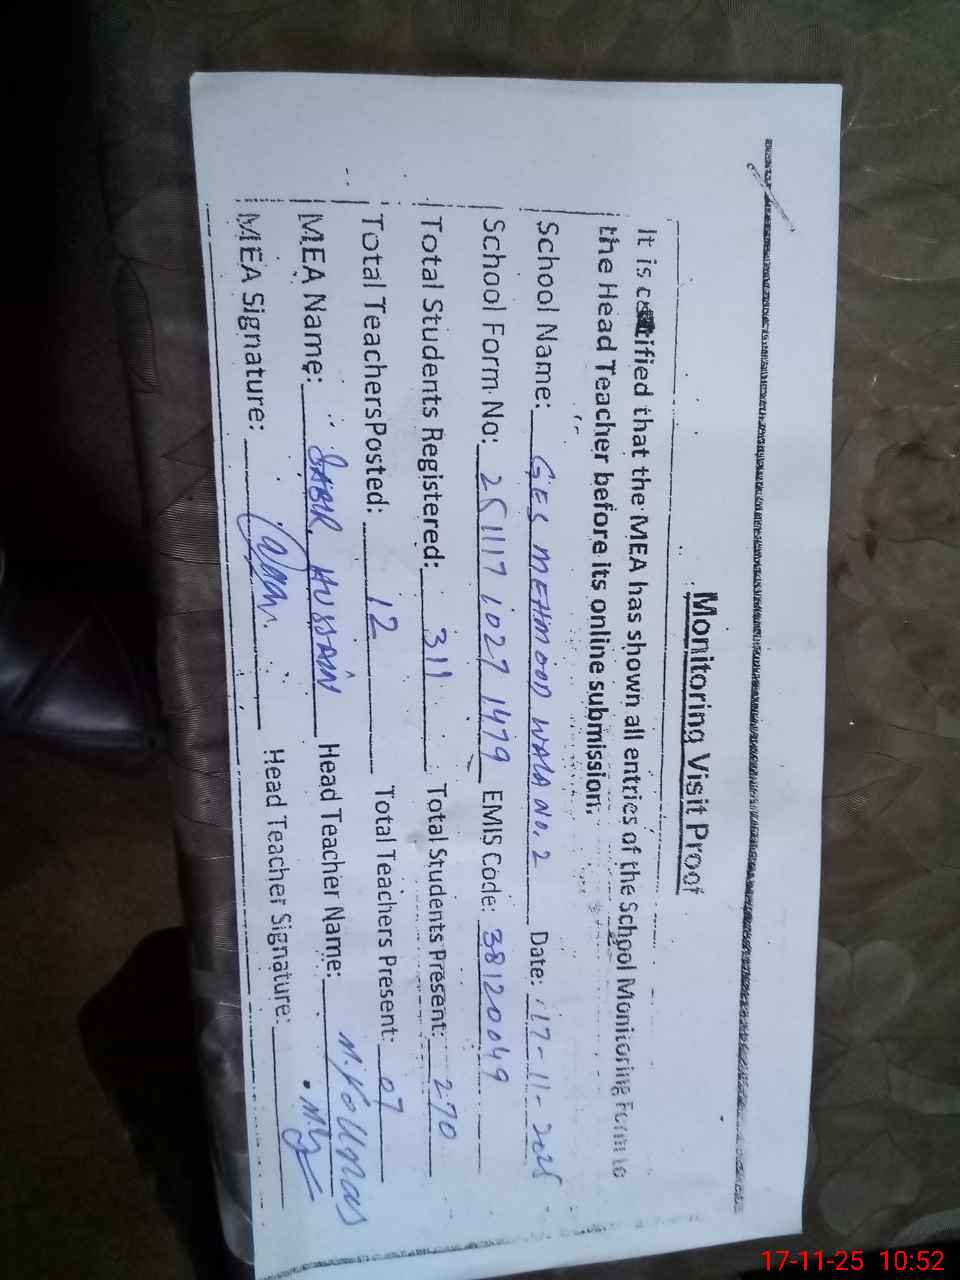 Monitoring Visit Proof
It is certified that the MEA has shown all entries of the School Monitoring Form to
the Head Teacher before its online submission.
School Name: GES MEHMOOD WALA No. 2 Date: 17-11-2025
School Form No: 251117 1027 1479 EMIS Code: 38120049
Total Students Registered: 311 Total Students Present: 270
Total Teachers Posted: 12 Total Teachers Present: 07
MEA Name: SABIR HUSSAIN Head Teacher Name: M.
MEA Signature: Head Teacher Signature:
17-11-25 10:52